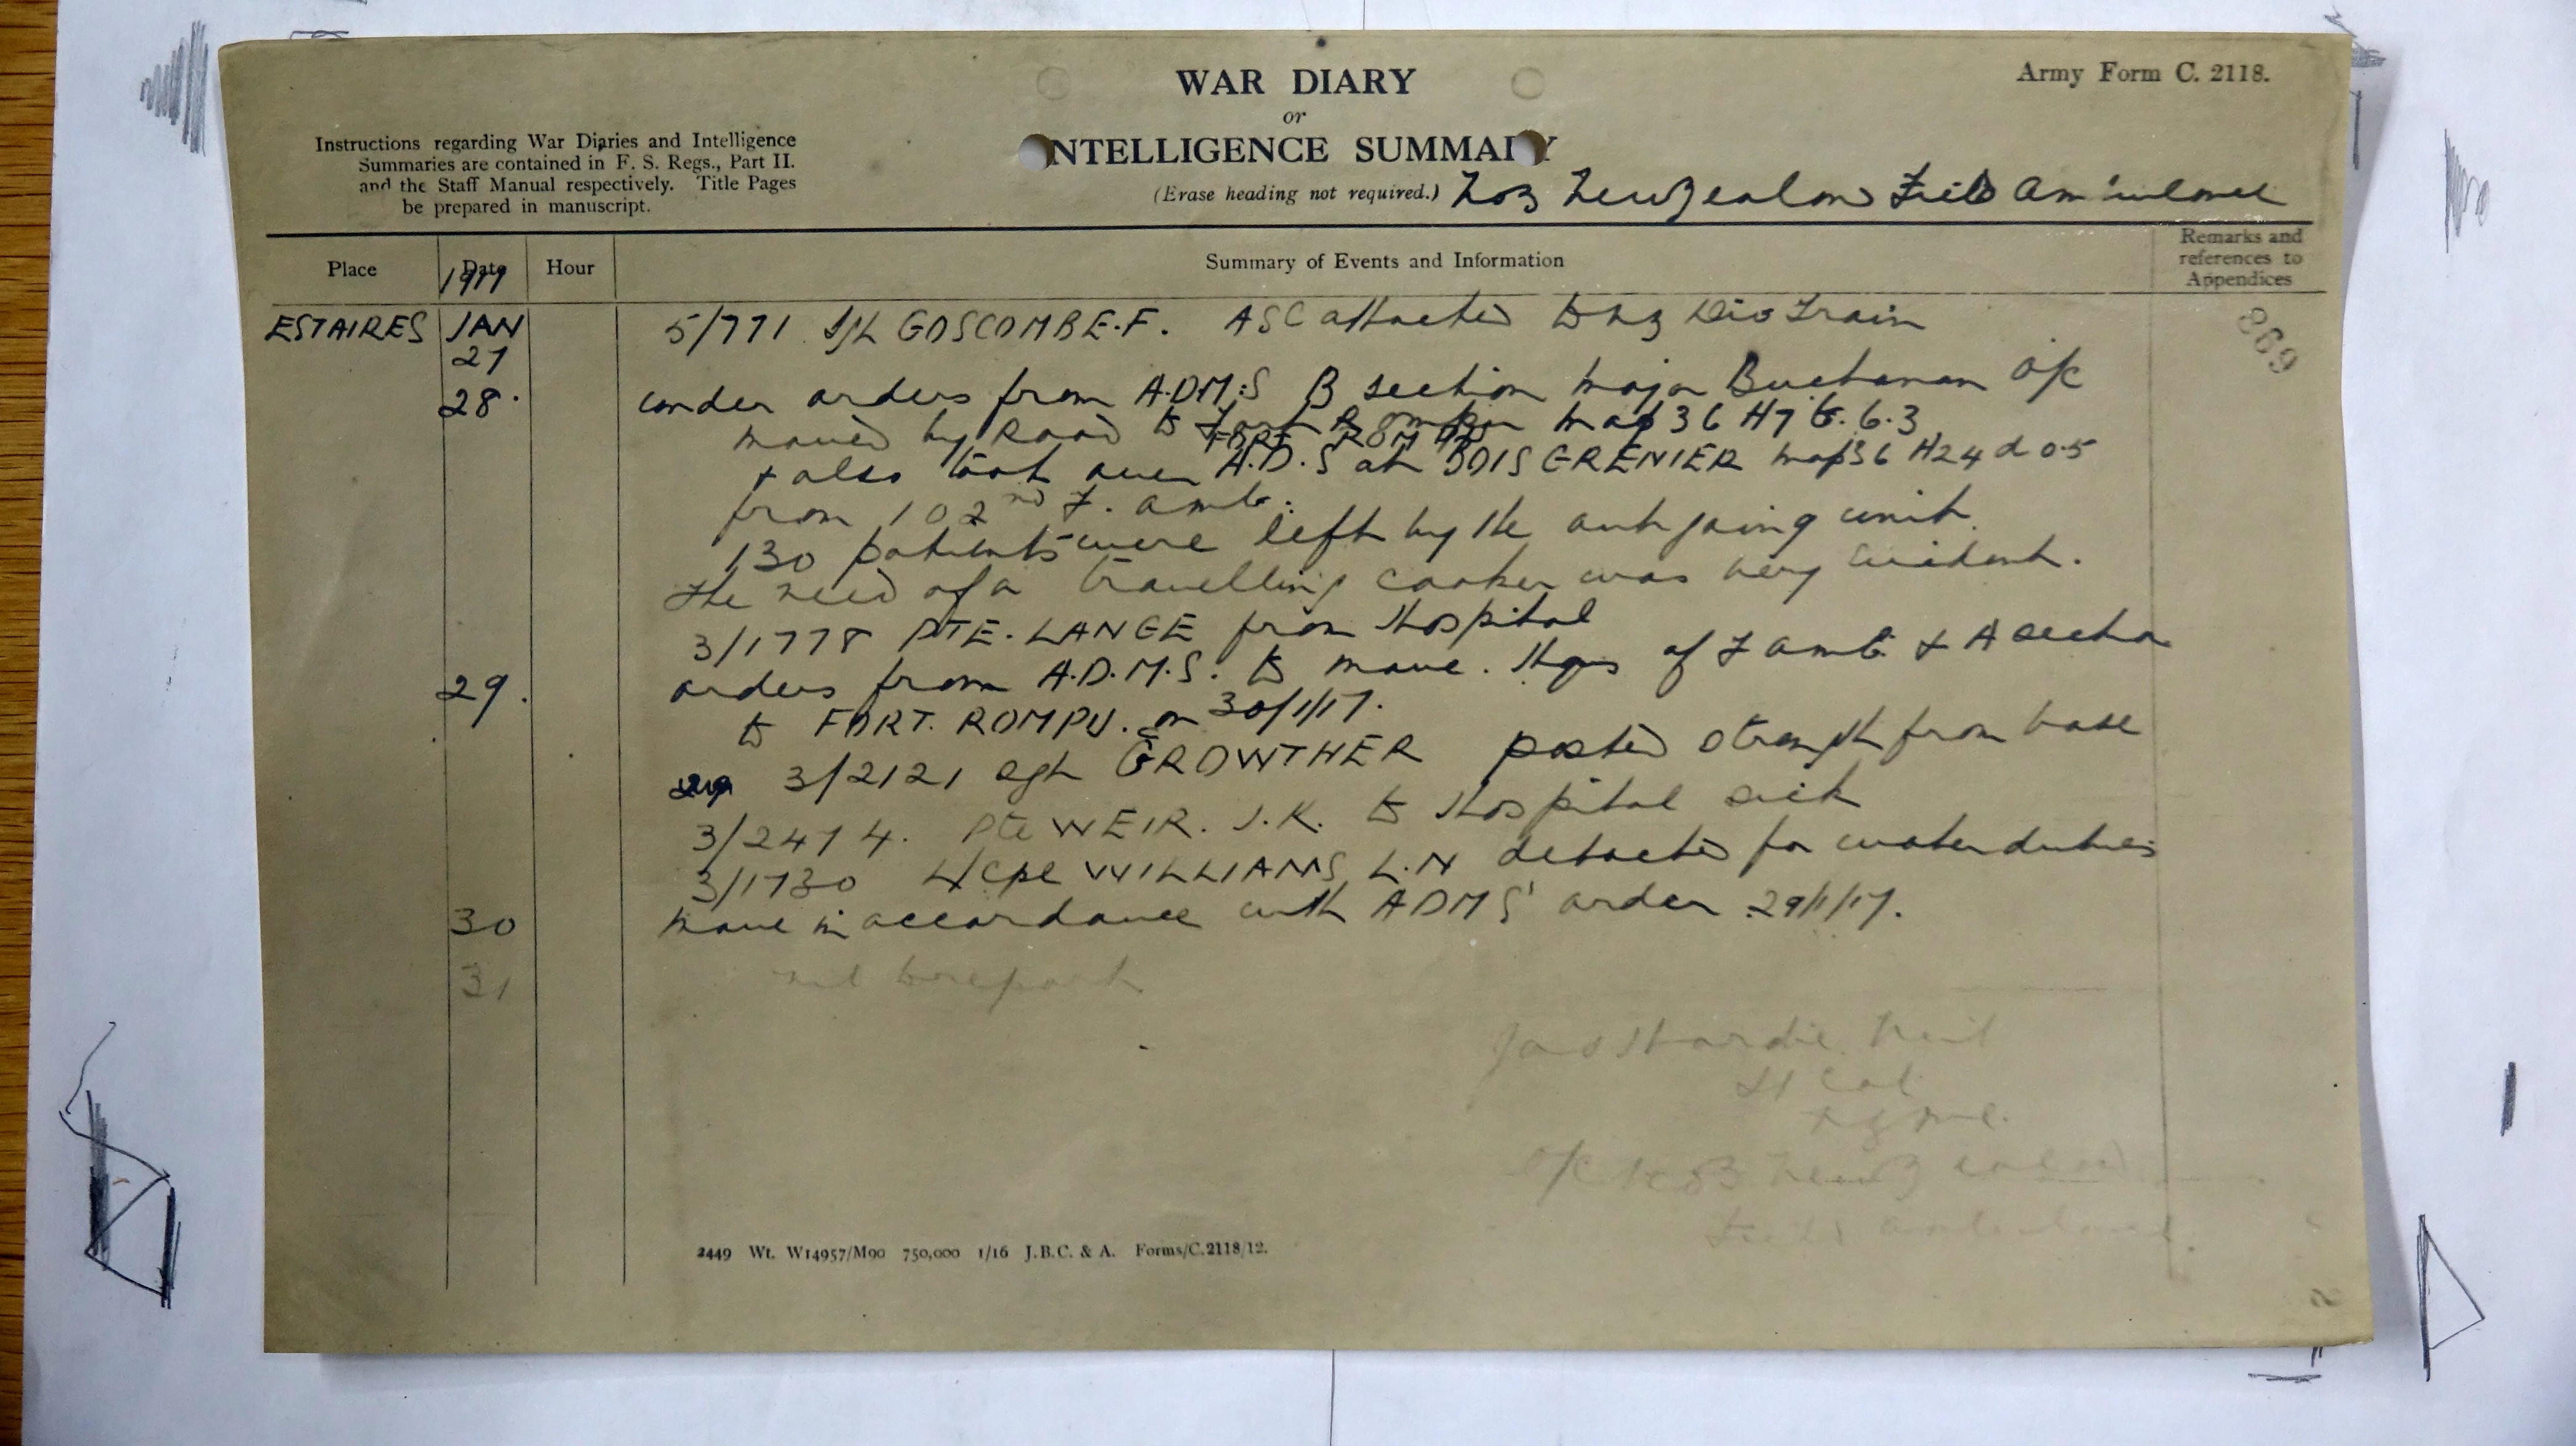 Army Form C. 2118.
WAR DIARY
or
INTELLIGENCE SUMMARY
(Erase heading not required.) No3 New Zealand Field Ambulance
Instructions regarding War Diaries and Intelligence
Summaries are contained in F. S. Regs., Part II.
and the Staff Manual respectively. Title Pages
be prepared in manuscript.
Place Date Hour Summary of Events and Information Remarks and references to Appendices
1917
869
ESTAIRES JAN 5/771 GOSCOMBE.F. ASC attached to NZ Div Train
27
28. under orders from A.D.M.S B section Major Buchanan O/C
moved by Road to Fort Rompu map 36 H7 b. 6.3
FORT ROMPU
& also took over A.D.S at BOIS GRENIER map 36 H24 d 0.5
from 102nd F. amb.
130 patients were left by the out going unit.
The need of a travelling cooker was very evident.
3/1778 PTE. LANGE from Hospital
29. orders from A.D.M.S. to move. Hqrs of F amb. & A section
to FORT. ROMPU. on 30/1/17.
29 3/2121 Sgt CROWTHER posted strength from base
3/2474. Pte WEIR. J.K. to Hospital sick
3/1730 L/Cpl WILLIAMS L.N detached for water duties
30 move in accordance with ADMS' order 29/1/17.
31 nil to report
Jas Hardie Neil
Lt Col
NZMC.
O/C No3 New Zealand
Field Ambulance.
2449 Wt. W14957/M90 750,000 1/16 J.B.C. & A. Forms/C.2118/12.